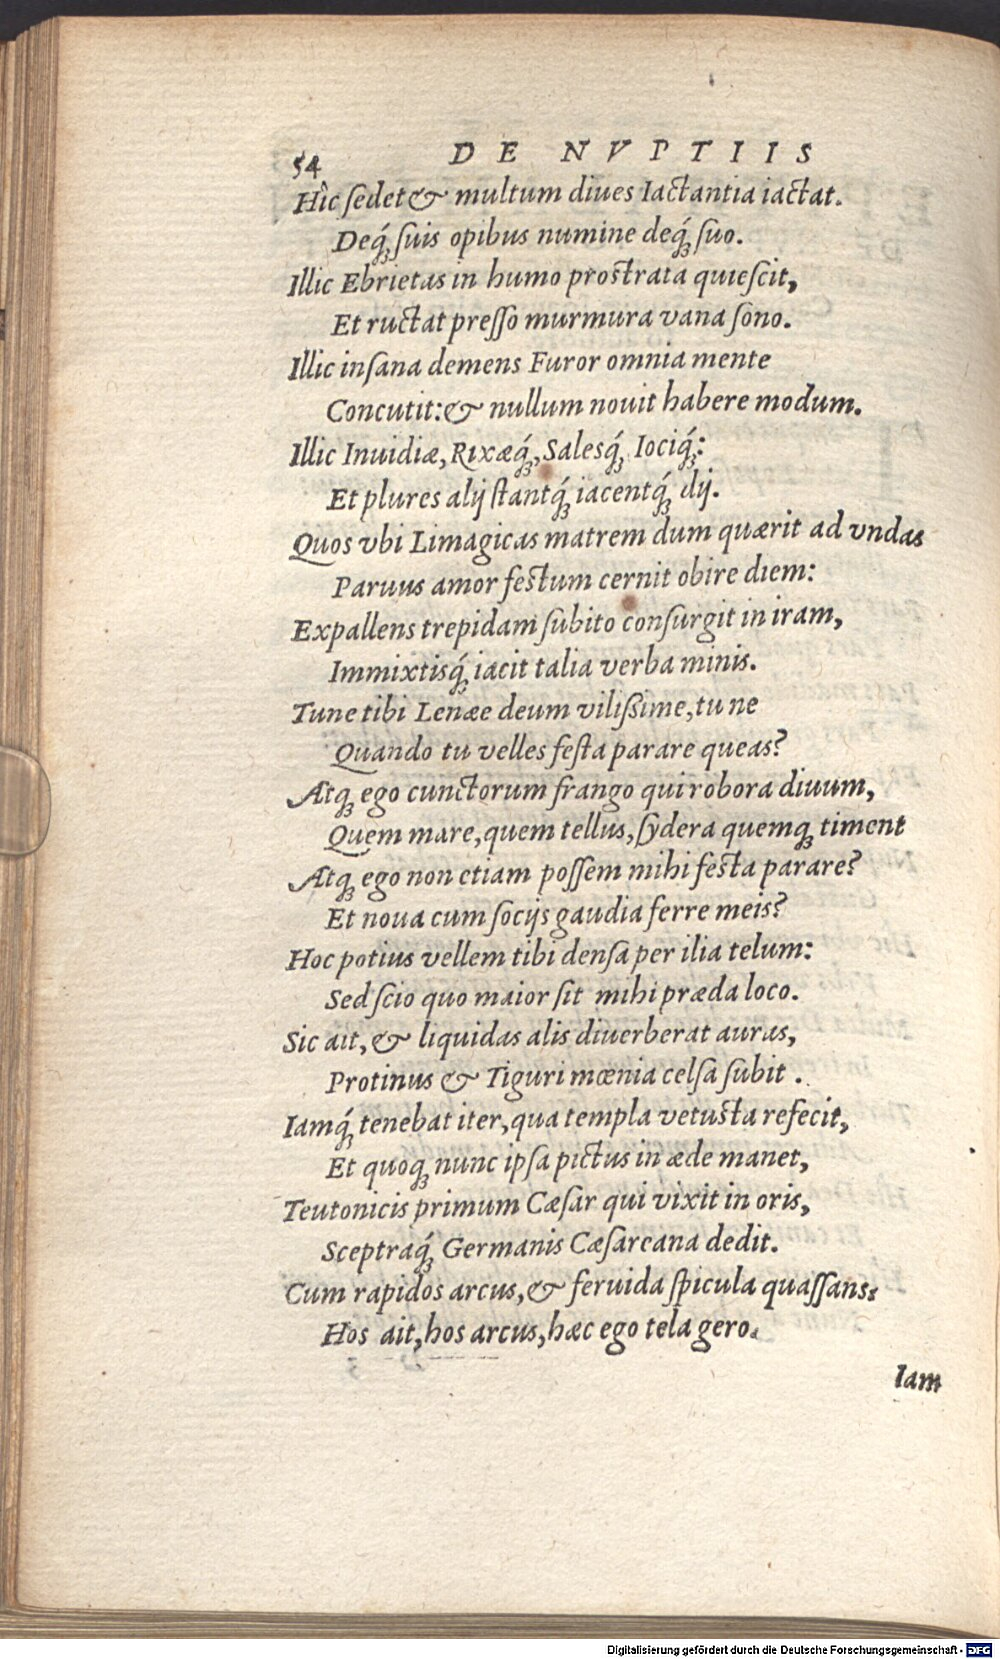 54 DE NVPTIIS
Hîc ſedet & multum diues Iactantia iactat.
Deq́; ſuis opibus numine deq́; ſuo.
Illic Ebrietas in humo proſtrata quieſcit,
Et ructat preſſo murmura vana ſono.
Illic inſana demens Furor omnia mente
Concutit: & nullum nouit habere modum.
Illic Inuidiæ, Rixæq́;, Salesq́; Iociq́;:
Et plures alij ſtantq́; iacentq́; dij.
Quos vbi Limagicas matrem dum quærit ad vndas
Paruus amor feſtum cernit obire diem:
Expallens trepidam ſubito conſurgit in iram,
Immixtisq́; iacit talia verba minis.
Tune tibi Lenæe deum viliſsime, tu ne
Quando tu velles feſta parare queas?
Atq; ego cunctorum frango qui robora diuum,
Quem mare, quem tellus, ſydera quemq; timent
Atq; ego non etiam poſſem mihi feſta parare?
Et noua cum ſocijs gaudia ferre meis?
Hoc potius vellem tibi denſa per ilia telum:
Sed ſcio quo maior ſit mihi præda loco.
Sic ait, & liquidas alis diuerberat auras,
Protinus & Tiguri mœnia celſa ſubit.
Iamq́; tenebat iter, qua templa vetuſta refecit,
Et quoq; nunc ipſa pictus in æde manet,
Teutonicis primum Cæſar qui vixit in oris,
Sceptraq́; Germanis Cæſareana dedit.
Cum rapidos arcus, & feruida ſpicula quaſſans:
Hos ait, hos arcus, hæc ego tela gero.
Iam
Digitalisierung gefördert durch die Deutsche Forschungsgemeinschaft - DFG